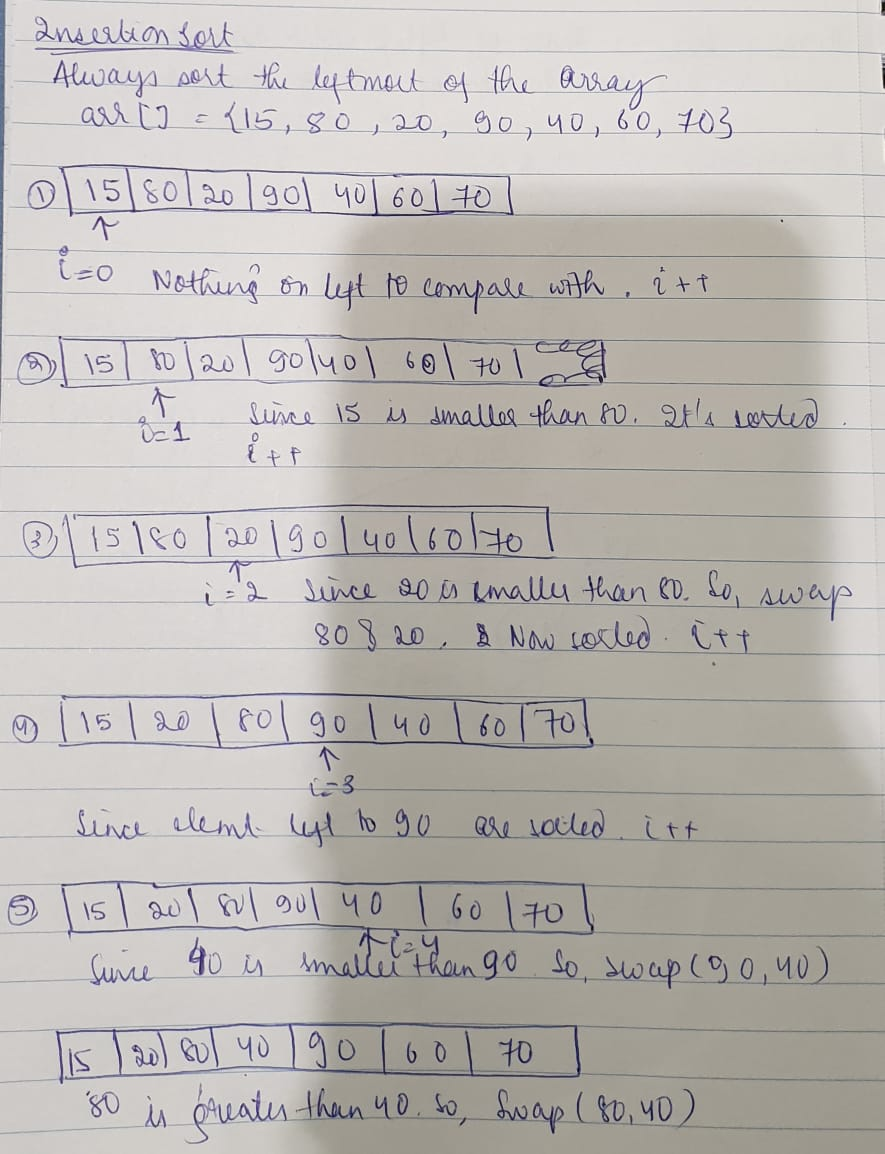 Insertion Sort
Always sort the leftmost of the array
arr[] = {15, 80, 20, 90, 40, 60, 70}
① 15 | 80 | 20 | 90 | 40 | 60 | 70
↑
i=0 Nothing on left to compare with. i++
② 15 | 80 | 20 | 90 | 40 | 60 | 70
↑
i=1 Since 15 is smaller than 80. It's sorted.
i++
③ 15 | 80 | 20 | 90 | 40 | 60 | 70
↑
i=2 Since 20 is smaller than 80. So, swap
80 & 20. Now sorted. i++
④ 15 | 20 | 80 | 90 | 40 | 60 | 70
↑
i=3
Since elemt left to 90 are sorted. i++
⑤ 15 | 20 | 80 | 90 | 40 | 60 | 70
↑ i=4
Since 40 is smaller than 90. So, swap(90,40)
15 | 20 | 80 | 40 | 90 | 60 | 70
80 is greater than 40. So, Swap(80,40)